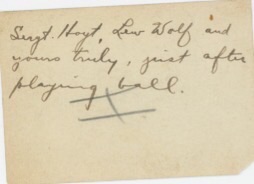 Sergt. Hoyt, Lew Wolf and
yours truly, just after
playing ball.